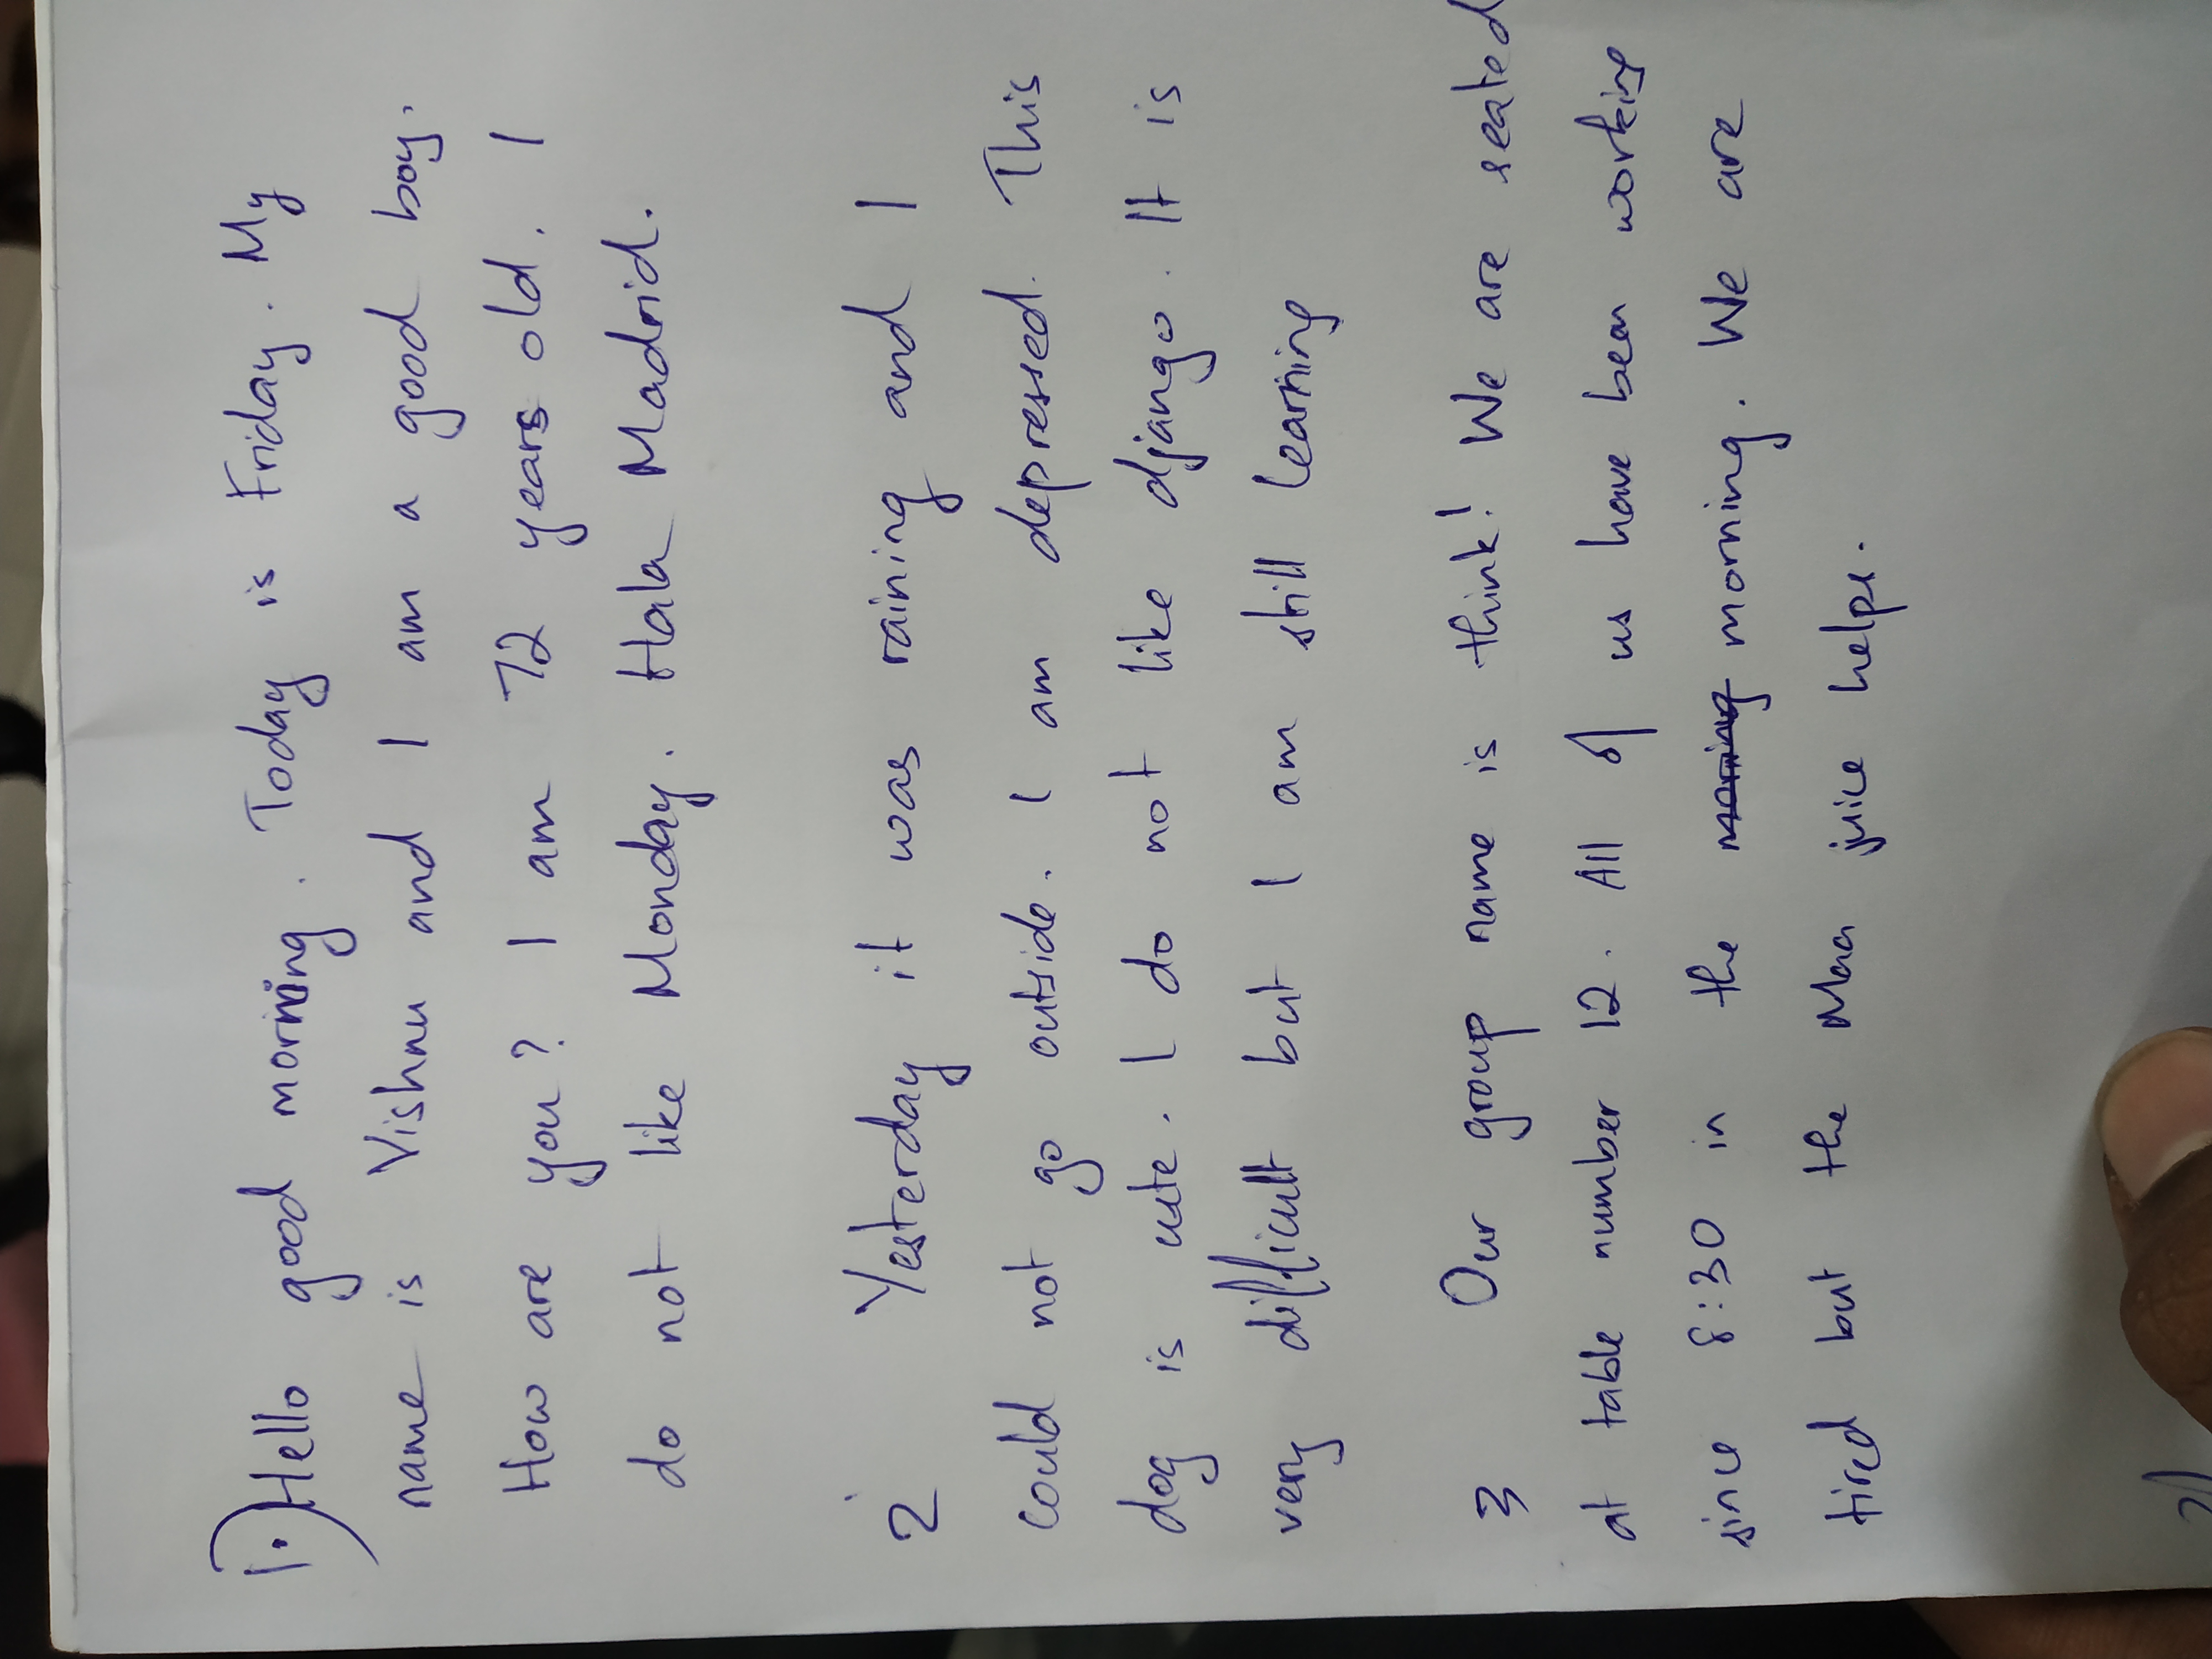 1.) Hello good morning. Today is Friday. My
name is Vishnu and I am a good boy.
How are you? I am 72 years old. I
do not like Monday. Hala Madrid.
2 Yesterday it was raining and I
could not go outside. I am depressed. This
dog is cute. I do not like django. It is
very difficult but I am still learning
3 Our group name is think! We are seated
at table number 12. All of us have been working
since 8:30 in the morning. We are
tired but the Maa juice helps.